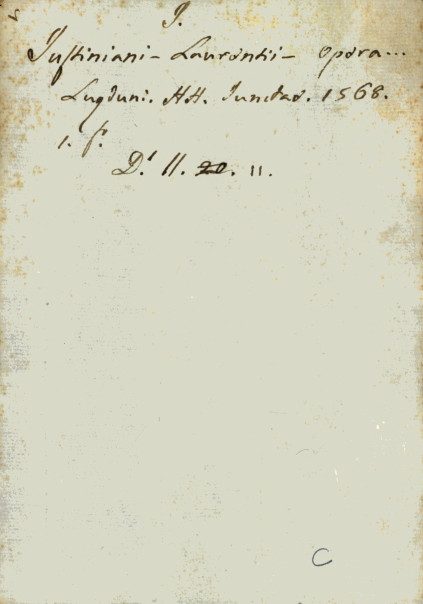 J.
Justiniani - Laurentii - opera...
Lugduni. HH. Junctae. 1568.
1. f.
D.ʳ II. 20. 11.
C